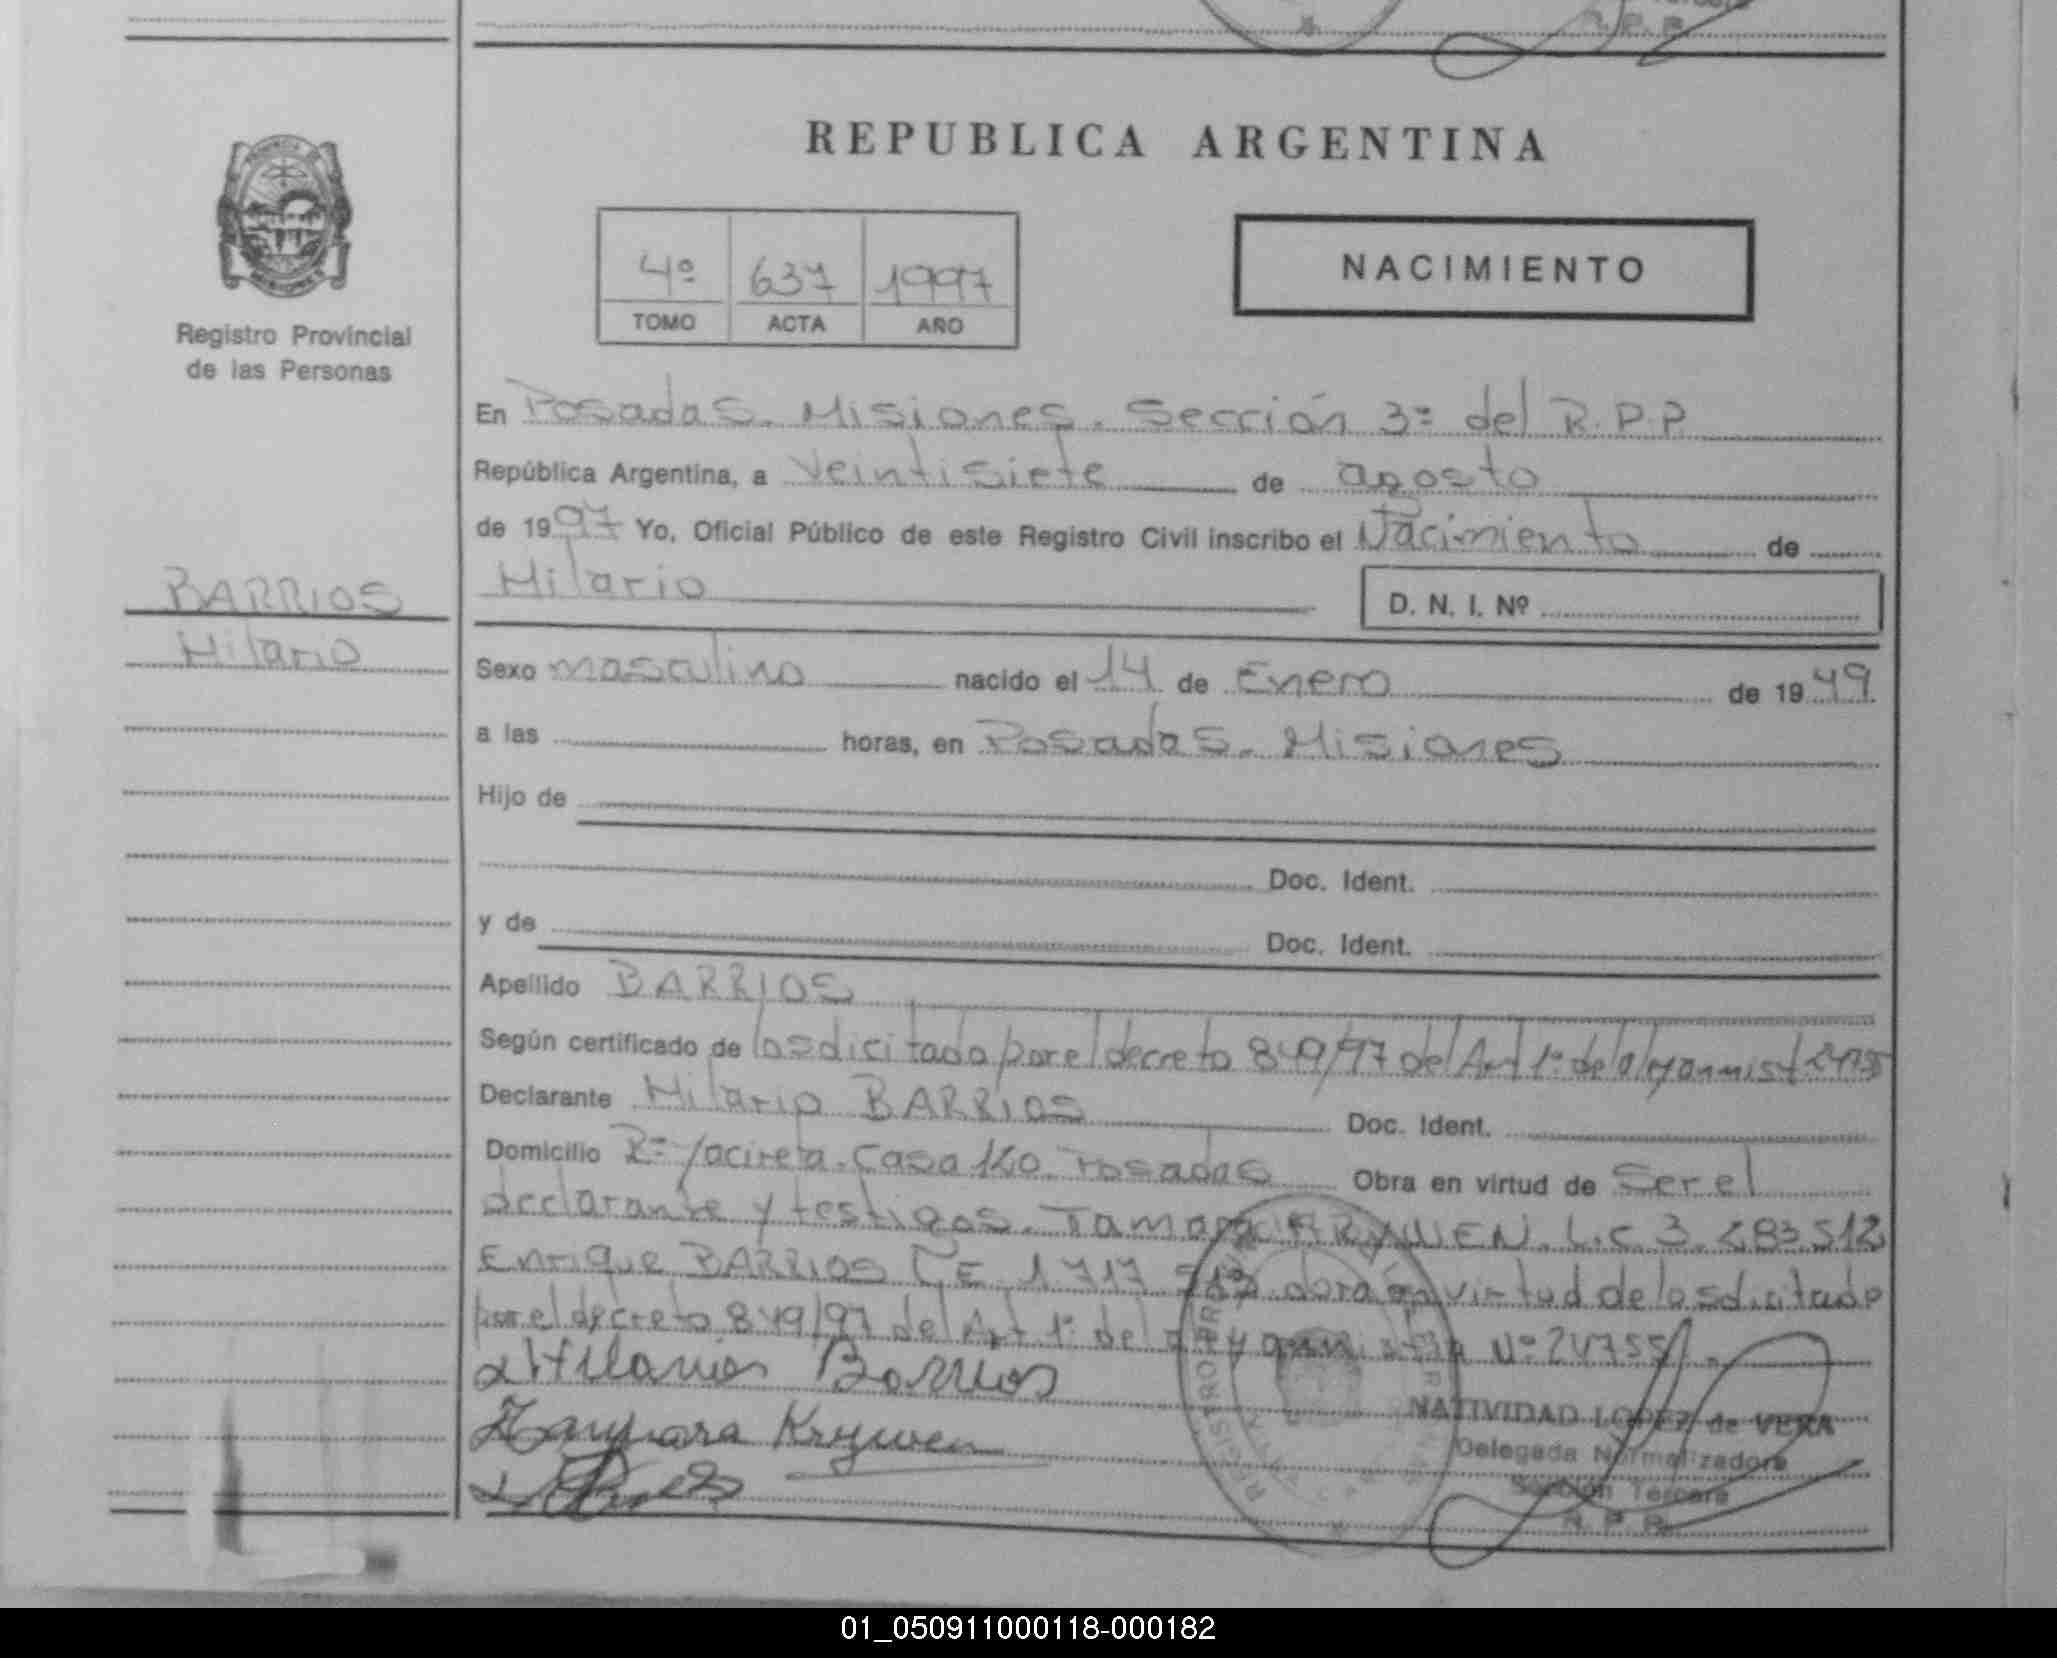 REPUBLICA ARGENTINA
4º 637 1997
TOMO ACTA AÑO
NACIMIENTO
Registro Provincial
de las Personas
En Posadas. Misiones. Sección 3º del R.P.P
República Argentina, a veintisiete de agosto
de 1997 Yo, Oficial Público de este Registro Civil inscribo el Nacimiento de
Hilario D. N. I. Nº
BARRIOS
Hilario
Sexo masculino nacido el 14 de Enero de 1949
a las horas, en Posadas. Misiones
Hijo de
Doc. Ident.
y de Doc. Ident.
Apellido BARRIOS
Según certificado de lo sdicitado por el decreto 849/97 del Art 1º de
Declarante Hilario BARRIOS Doc. Ident.
Domicilio Bº Yacireta. Casa 120. Posadas Obra en virtud de Ser el
declarante y testigos. Tamara L.C 3.283.512
Enrique BARRIOS 1.717 obra en virtud de lo sdicitado
por el decreto 849/97 del Art 1º de Nº 24755
Hilario Barrios
Krywen
NATIVIDAD LOPEZ de VERA
Delegada Normalizadora
Sección Tercera
R. P. P.
01_050911000118-000182